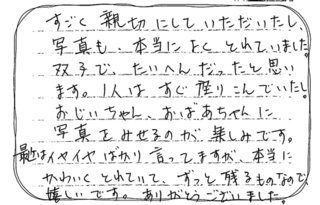 すごく親切にしていただいたし、
写真も、本当によくとれていました。
双子で、たいへんだったと思い
ます。1人はすぐ座りこんでいたし。
おじいちゃん、おばあちゃんに
写真をみせるのが楽しみです。
最近はイヤイヤばかり言ってますが、本当に
かわいくとれていて、ずっと残るものなので
嬉しいです。ありがとうございました。